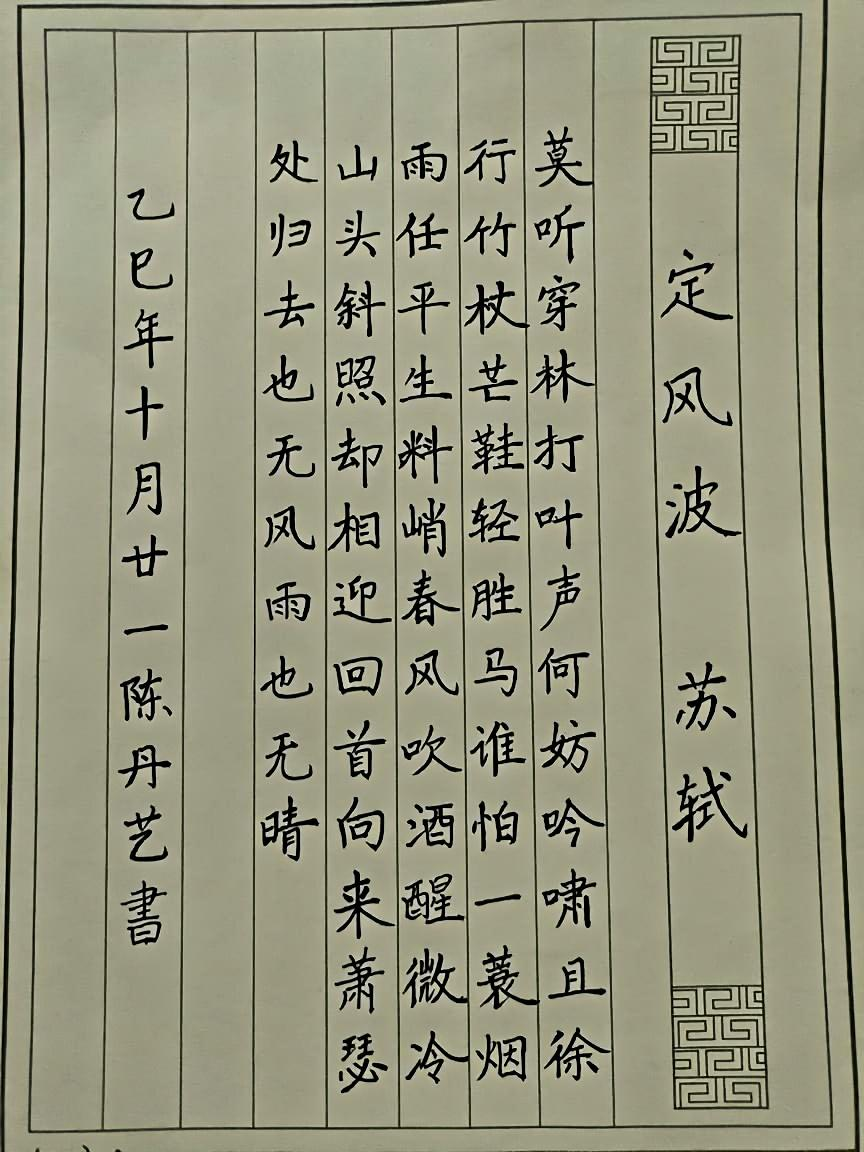 定风波 苏轼
莫听穿林打叶声何妨吟啸且徐
行竹杖芒鞋轻胜马谁怕一蓑烟
雨任平生料峭春风吹酒醒微冷
山头斜照却相迎回首向来萧瑟
处归去也无风雨也无晴
乙巳年十月廿一陈丹艺書